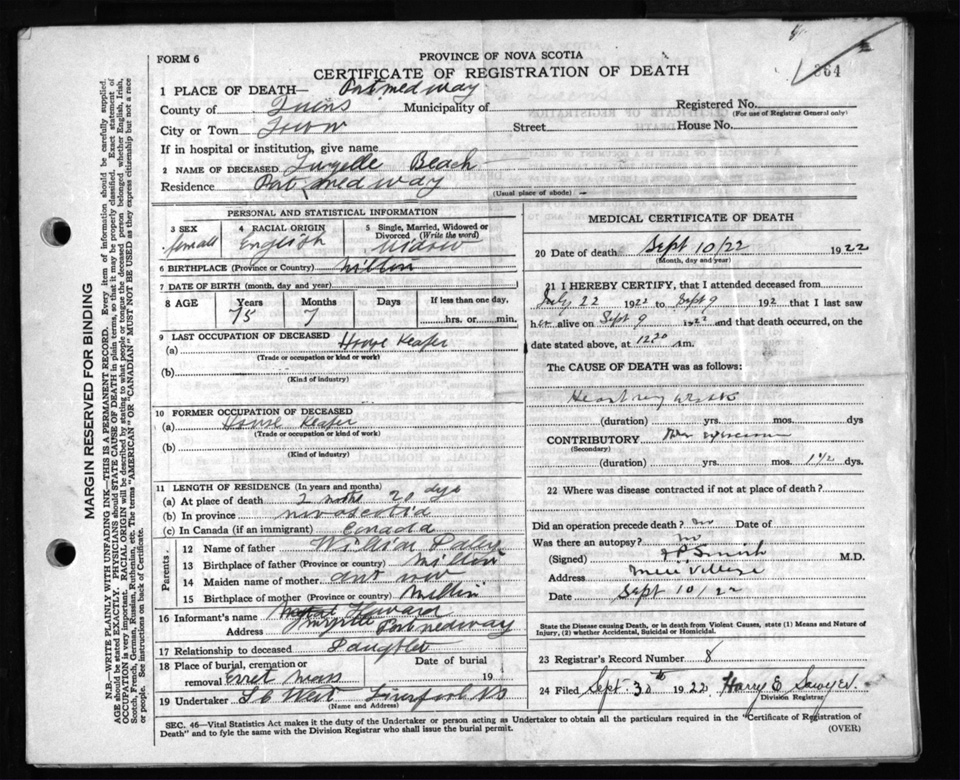 FORM 6
PROVINCE OF NOVA SCOTIA
CERTIFICATE OF REGISTRATION OF DEATH
364
1 PLACE OF DEATH— Port medway
County of Quins Municipality of
Registered No.
(For use of Registrar General only)
City or Town Town Street House No.
If in hospital or institution, give name
2 NAME OF DECEASED Beach
Residence Port medway
(Usual place of abode)
PERSONAL AND STATISTICAL INFORMATION
3 SEX
4 RACIAL ORIGIN
5 Single, Married, Widowed or Divorced (Write the word)
female English Widow
6 BIRTHPLACE (Province or Country) Milton
7 DATE OF BIRTH (month, day and year)
8 AGE Years Months Days If less than one day,
75 7 hrs. or min.
9 LAST OCCUPATION OF DECEASED
(a) House Keaper
(Trade or occupation or kind of work)
(b)
(Kind of industry)
10 FORMER OCCUPATION OF DECEASED
(a) House Keaper
(Trade or occupation or kind of work)
(b)
(Kind of industry)
11 LENGTH OF RESIDENCE (In years and months)
(a) At place of death 2 months 20 dys
(b) In province novascotia
(c) In Canada (if an immigrant) Canada
Parents
12 Name of father William
13 Birthplace of father (Province or country) Milton
14 Maiden name of mother
15 Birthplace of mother (Province or country) Milton
16 Informant's name
Address Port medway
17 Relationship to deceased Daughter
18 Place of burial, cremation or removal
Date of burial
19
19 Undertaker West Liverpool NS
(Name and Address)
MEDICAL CERTIFICATE OF DEATH
20 Date of death Sept 10/22 1922
(Month, day and year)
21 I HEREBY CERTIFY, that I attended deceased from
July 22 1922 to Sept 9 192 that I last saw
her alive on Sept 9 1922 and that death occurred, on the
date stated above, at 1220 am.
The CAUSE OF DEATH was as follows:
(duration) yrs. mos. dys
CONTRIBUTORY
(Secondary)
(duration) yrs. mos. dys.
22 Where was disease contracted if not at place of death?
Did an operation precede death? no Date of
Was there an autopsy? no
(Signed) Smith M.D.
Address Mill Village
Date Sept 10/22
State the Disease causing Death, or in death from Violent Causes, state (1) Means and Nature of Injury, (2) whether Accidental, Suicidal or Homicidal.
23 Registrar's Record Number 8
24 Filed Sept. 30th 1922 Harry E Sawyer.
Division Registrar
SEC. 46—Vital Statistics Act makes it the duty of the Undertaker or person acting as Undertaker to obtain all the particulars required in the "Certificate of Registration of
Death" and to fyle the same with the Division Registrar who shall issue the burial permit.
(OVER)
MARGIN RESERVED FOR BINDING
N.B.—WRITE PLAINLY WITH UNFADING INK—THIS IS A PERMANENT RECORD. Every item of information should be carefully supplied.
AGE should be stated EXACTLY. PHYSICIANS should STATE CAUSE OF DEATH in plain terms, so that it may be properly classified. Exact statement of
OCCUPATION is very important. RACIAL ORIGIN will be described by stating to what people or tongue the deceased person belonged whether English, Irish,
Scotch, French, German, Russian, Ruthenian, etc. The terms "AMERICAN" OR "CANADIAN" MUST NOT BE USED as they express citizenship but not a race
or people. See instructions on back of Certificate.